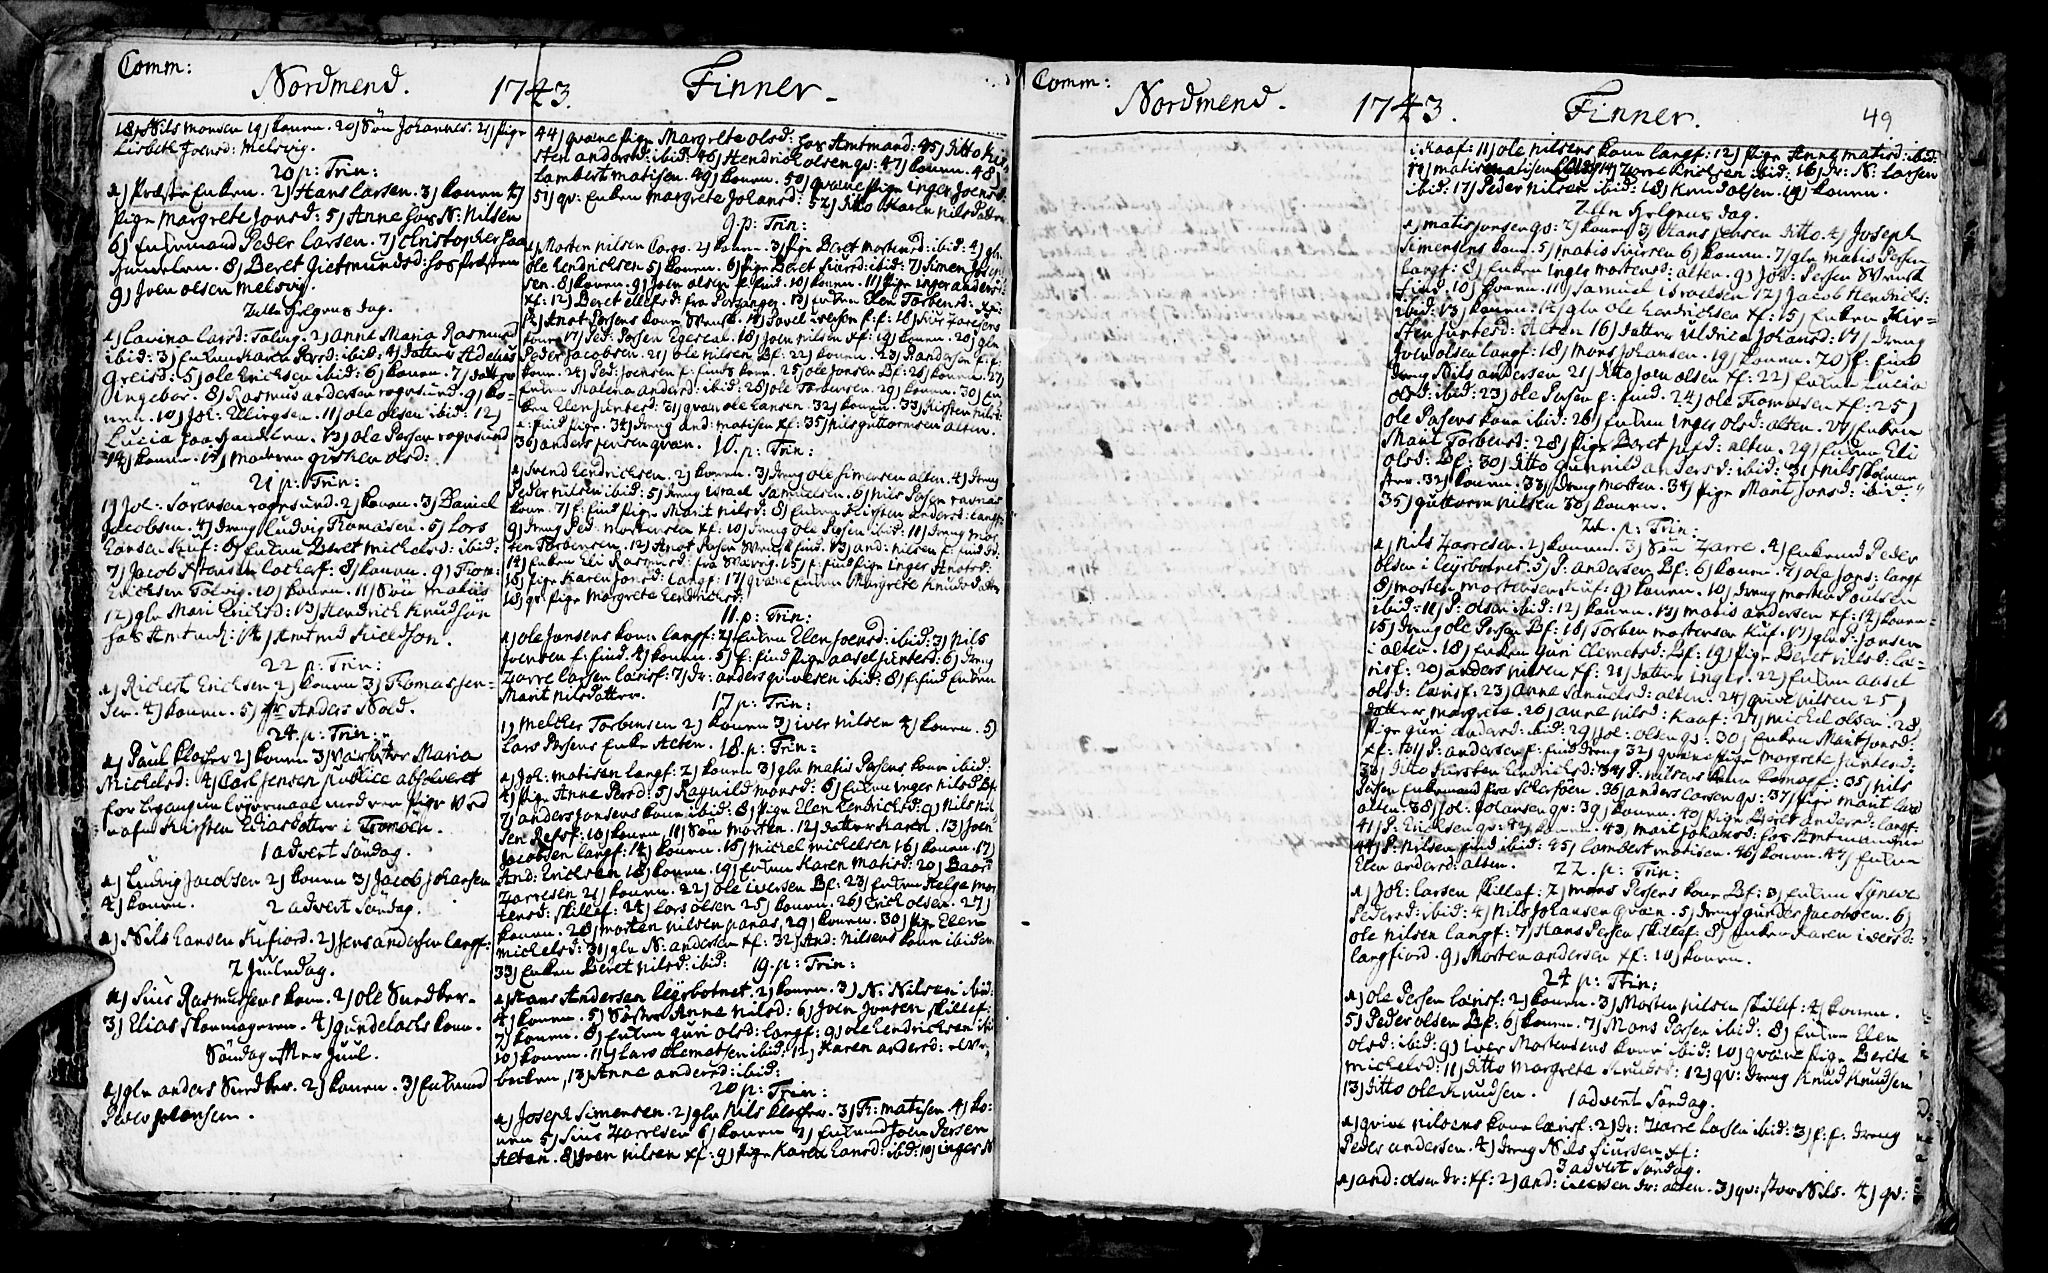 Comm:
Nordmend. 1743. Finner.
18) Nils Monsen 19) konen. 20) Søn Johannes. 21) pige
Lisbeth Joensd: Melsvig.
20 p: Trin:
1) Præste Enken. 2) Hans Larsen. 3) konen 4)
pige Margrete Jonsd: 5) Anne hos N: Nilsen
6) Enkemand Peder Larsen. 7) Christopher paa
Handelen. 8) Beret Gietmundsd: hos Præsten
9) Joen olsen Melsvig.
Helgens dag.
1) Lavina Larsd: Talvig. 2) Anne Maria Rasmusd
ibid: 3) Enken Karen Persd: ibid: 4) datter Adelus
Greisd: 5) ole Erichsen ibid: 6) konen. 7) datter
Ingebor. 8) Rasmus andersen rognsund. 9) ko-
nen. 10) Joh: Ellingsen. 11) ole olsen ibid: 12)
Lucia paa handelen. 13) ole Persen rognsund
14) konen. 15) Madmen olsd:
21 p: Trin:
1) Joh: Sørensen rognsund. 2) konen. 3) Daniel
Jacobsen. 4) dreng Ludvig Thomæsen. 5) Lars
Hansen Kuf: 6) Enken Beret Michelsd: ibid:
7) Jacob Hansen 8) konen. 9) Thom:
Erichsen Talvig. 10) konen. 11) Søn Mathis
12) gle Mari Erichsd: 13) Hendrich Knudsen
hos Amtmd: 14) Amtmd Kieldson.
22 p: Trin:
1) Richert Erichsen 2) konen 3) Thomas Jen-
sen. 4) konen. 5) Anders Nord.
24 p: Trin:
1) Paul Klocker 2) konen 3) Maria
Michelsd: 4) Carl Jensen publice absolveret
for begangen Leyermaal med en pige ved
nafn Kirsten Eliasdotter i Tromsøen.
1 advent Søndag.
1) Ludvig Jacobsen 2) konen 3) Jacob Johansen
4) konen.
2 advent Søndag.
1) Nils Hansen Kufiord. 2) Jens andersen langf:
2 Juledag.
1) Siur Rasmusens konen. 2) ole Snedker-
3) Elias skomageren. 4) Gundelachs konen.
Søndag efter Juul.
1) gle anders Snedker. 2) konen. 3) Enkemd
Peder Johansen.
44) qvæne pige Margrete olsd: hos Amtmand: 45) ditto Kir-
sten andersd: ibid: 46) Hendrich olsen qv: 47) konen. 48)
Lambert matisen. 49) konen. 50) qvæne pige Inger Joensd:
51) qv: Enken Margrete Johansd: 52) ditto Karen Nilsdatter
9. p: Trin:
1) Morten Nilsen Corgo. 2) konen. 3) pige Beret Mortensd: ibid: 4) gle
ole Hendrichsen 5) konen. 6) pige Beret Siursd: ibid: 7) Simen Josep-
sen. 8) konen. 9) Joen olsen f: find. 10) konen. 11) pige Inger andersd:
xf: 12) Beret ellefsd: fra Porsanger. 13) Enken Elen Torbensd: xf:
14) Anot Persens konen Svensk. 15) Povel iversen f: f: 16) Siur Zarresens
konen. 17) Ped: Persen Egersal. 18) Joen Nilsen xf: 19) konen. 20) gle
Peder Jacobsen. 21) ole Nilsen Bf: 22) konen. 23) P. andersen f: f:
konen. 24) Ped: Joensen f: finds konen. 25) ole Jonsen Bf: 26) konen. 27)
Enken Malena andersd: ibid: 28) ole Thomesen. 29) konen. 30) En-
ken Elen Juntesd: 31) qvæn ole Hansen. 32) konen. 33) Kirsten Nilsd:
f: find pige. 34) dreng and: matisen xf: 35) Nils guttormsen alten.
36) anders Jensen qvæn.
10. p: Trin:
1) Svend Hendrichsen. 2) konen. 3) dreng ole Simensen alten. 4) dreng
Peder Nilsen ibid: 5) dreng israel Samuelsen. 6) Nils Persen ravnas
konen. 7) f: find pige Marit Nilsd: 8) Enken Kirsten andersd: langf:
9) dreng Ped: mortensen xf: 10) dreng ole Persen ibid: 11) dreng mor-
ten Torbensen. 12) Anot Persen Svensk find. 13) and: nilsen f: find
14) Enken Eli Rasmusd: fra Warrg. 15) f: find pige Inger Anotsd:
16) pige Karen Jonsd: langf: 17) qvæne Enken Margrete Knudsdatter
18) qv: pige Margrete Hendrichsd:
11. p: Trin:
1) ole Jonsens konen langf: 2) Enken Elen Joensd: ibid: 3) Nils
Joensen f: find. 4) konen. 5) f: find pige aasel Juntesd: 6) dreng
Zarre Larsen larisf: 7) dr: anders qvivesen ibid: 8) f: find Enken
Marit Nilsdatter.
17 p: Trin:
1) Melcher Torbensen 2) konen 3) iver Nilsen 4) konen. 5)
Lars Persens Enke Alten.
18. p: Trin:
1) Joh: matisen langf: 2) konen 3) gle matis Persens konen ibid:
4) pige Anne Persd: 5) Ragnild monsd: 6) Enken Inger Nilsd Bf:
7) anders Jonsens konen ibid: 8) pige Elen Hendrichsd: 9) Nils Nil-
sen Refsf: 10) konen. 11) Søn Morten. 12) datter Karen. 13) Joen
Jacobsen langf: 14) konen. 15) michel michelsen 16) konen. 17)
And: Erichsen 18) konen. 19) Enken Karen matisd: 20) Baar
Zarresen 21) konen. 22) ole iversen Bf: 23) Enken Helge mor-
tensd: Skillef: 24) Lars olsen 25) konen. 26) Erich olsen. 27)
konen. 28) morten nilsen panas. 29) konen. 30) pige Elen
michelsd: 31) gle N: andersen xf: 32) And: Nilsens konen ibidem
33) Enken Beret Nilsd: ibid:
19. p: Trin:
1) Hans Andersen Leyrbotnet. 2) konen. 3) N: Nilsen ibid:
4) konen. 5) Søster Anne nilsd: 6) Joen Jonsen Skillef:
7) konen. 8) Enken guri olsd: langf: 9) ole Hendrichsen ibd
10) konen. 11) Lars Clemetsen ibid: 12) Karen andersd: elve-
backen, 13) Anne andersd: ibid:
20 p: Trin:
1) Joseph Simensen. 2) gle Nils Klocker. 3) Th: matisen. 4) ko:
nen 5) Siur Zarresen 6) konen 7) Enkemd Joen Persen
Alten. 8) Joen Nilsen xf: 9) pige Karen Hansd: ibid: 10) inger N
Comm:
Nordmend. 1743. Finner. 49
i Kaaf: 11) ole Nilsens konen langf: 12) pige Anne matisd: ibid:
13) matis matisen 14) Zarre Erichsen ibid: 16) dr: N: Larsen
ibid: 17) Peder Nilsen ibid: 18) Knud olsen. 19) konen.
Helgens dag.
1) Matis Jonsen qv: 2) konen 3) Hans Jensen ditto. 4) Joseph
Simensens konen. 5) matis Siursen 6) konen. 7) gle matis Persen
langf: 8) Enken Inger mortensd: alten. 9) Joh: Persen Svensk
find. 10) konen. 11) Samuel israelsen 12) Jacob Hendrichs:
ibid: 13) konen. 14) gle ole Hendrichsen xf: 15) Enken Kir-
sten Juntesd: Alten 16) datter Uldrica Johansd: 17) dreng
Joen olsen langf: 18) Mons Johansen. 19) konen. 20) f: find
dreng Nils andersen 21) ditto Joen olsen xf: 22) Enken Lucia
olsd: ibid: 23) ole Persen f: find. 24) ole Thomæsen xf: 25)
ole Persens konen ibid: 26) Enken Inger olsd: alten. 27) Enken
Marit Torbensd: 28) pige Beret alten. 29) Enken Eli
olsd: Bf: 30) ditto Gunnild andersd: ibid: 31) Nils Skolme-
ster. 32) konen. 33) dreng morten. 34) pige Marit Jonsd: ibid:
35) Guttorm Nilsen 36) konen.
21. p: Trin:
1) Nils Zarresen. 2) konen. 3) Søn Zarre. 4) Enkemd Peder
olsen i Leyrbotnet. 5) P: andersen Bf: 6) konen. 7) ole Jons: langf
8) morten mortensen Kuf: 9) konen. 10) dreng morten Poulsen
ibid: 11) P: olsen ibid: 12) konen. 13) matis andersen xf: 14) konen.
15) dreng ole Persen Bf: 16) Torben mortensen Kuf: 17) gle P: Jonsen
i alten. 18) Enken Guri Clemetsd: Bf: 19) pige Beret nilsd: la-
risf: 20) anders nilsen xf: 21) datter Inger. 22) Enken Aasel
olsd: larisf: 23) Anne Samuelsd: alten. 24) qvive nilsen 25)
datter Margrete. 26) anne nilsd: Kaaf: 27) michel olsen. 28)
pige guri andersd: ibid: 29) Joh: olsen qv: 30) Enken Marit Jonsd:
xf: 31) P: andersen f: find dreng 32) qvæne pige Margrete Juntesd:
33) ditto Kirsten Hendrichsd: 34) P: nilsens konen Komagf: 35) Nils
Persen Enkemand fra Skierføen. 36) anders Larsen qv: 37) pige Marit Larsd
alten. 38) Joh: Johansen qv: 39) konen. 40) pige Beret andersd: langf:
41) P: Erichsen qv: 42) konen. 43) Marit Johansd: hos Amtmanden
44) P: Nilsen find ibid: 45) Lambert matisen. 46) konen. 47) Enken
Elen andersd: alten.
22. p: Trin:
1) Joh: Larsen Skillef: 2) mons Persens konen Bf: 3) Enken Syneve
Pedersd: ibid: 4) Nils Johansen qvæn. 5) dreng gunder Jacobsen. 6)
ole nilsen langf: 7) Hans Persen Skillef: 8) Enken Karen iversd:
langfiord. 9) Morten andersen xf: 10) konen.
24 p: Trin:
1) ole Persen larisf: 2) konen. 3) Morten nilsen Skillef: 4) konen.
5) Peder olsen Bf: 6) konen. 7) Mons Persen ibid: 8) Enken Elen
olsd: ibid: 9) iver Mortensens konen ibid: 10) qvæne pige Berete
michelsd: 11) ditto Margrete Knudsd: 12) qv: dreng Knud Knudsen
13) ditto ole Knudsen.
1 advent Søndag.
1) qvive nilsens konen larisf: 2) dr: Zarre Larsen ibid: 3) f: f: dreng
Peder andersen. 4) dreng Nils Siursen xf:
3 advent Søndag.
1) and: olsen dr: xf: 2) and: iversen dr: alten. 3) qv: stor Nils. 4) qv: